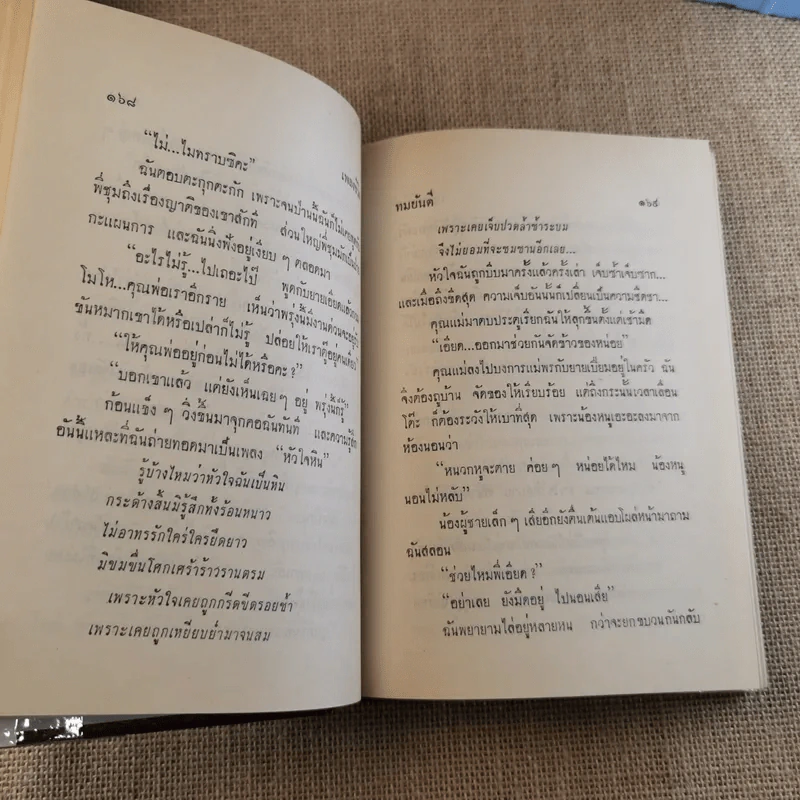 ๑๖๘
เพลง
“ไม่...ไม่ทราบซิคะ”
ฉันตอบตะกุกตะกัก เพราะจนป่านนี้ฉันก็ไม่เคย
พี่ชุมถึงเรื่องญาติของเขาสักที ส่วนใหญ่พี่ชุมมัก
กะแผนการ และฉันนิ่งฟังอยู่เงียบ ๆ ตลอดมา
“อะไรไม่รู้...ไปเถอะไป๊ พูดกับยายเอียดแล้ว
โมโห...คุณพ่อเราอีกราย เห็นว่าพรุ่งนี้มีงานด่วนจะ
ขันหมากเขาได้หรือเปล่าก็ไม่รู้ ปล่อยให้เราตุ๊อยู่คนเดียว
“ให้คุณพ่ออยู่ก่อนไม่ได้หรือคะ?”
“บอกเขาแล้ว แต่ยังเห็นเฉย ๆ อยู่ พรุ่งนี้ก็รู้”
ก้อนแข็ง ๆ วิ่งขึ้นมาจุกคอฉันทันที และความรู้สึก
อันนี้แหละที่ฉันถ่ายทอดมาเป็นเพลง “หัวใจหิน”
รู้บ้างไหมว่าหัวใจฉันเป็นหิน
กระด้างสิ้นมิรู้สึกทั้งร้อนหนาว
ไม่อาทรรักใคร่ใครยืดยาว
มิขมขื่นโศกเศร้าร้าวรานตรม
เพราะหัวใจเคยถูกกรีดขีดรอยช้ำ
เพราะเคยถูกเหยียบย่ำมาจนสม
ทมยันตี
๑๖๙
เพราะเคยเจ็บปวดล้ำช้ำระบม
จึงไม่ยอมที่จะซมซานอีกเลย...
หัวใจฉันถูกบีบมาครั้งแล้วครั้งเล่า เจ็บซ้ำเจ็บซาก...
และเมื่อถึงขีดสุด ความเจ็บอันนั้นก็เปลี่ยนเป็นความชืดชา...
คุณแม่มาตบประตูเรียกฉันให้ลุกขึ้นตั้งแต่เช้ามืด
“เอียด...ออกมาช่วยกันจัดข้าวของหน่อย”
คุณแม่ลงไปบงการแม่พรกับยายเบี้ยมอยู่ในครัว ฉัน
จึงต้องถูบ้าน จัดของให้เรียบร้อย แต่ถึงกระนั้นเวลาเลื่อน
โต๊ะ ก็ต้องระวังให้เบาที่สุด เพราะน้องหนูเอะอะลงมาจาก
ห้องนอนว่า
“หนวกหูจะตาย ค่อย ๆ หน่อยได้ไหม น้องหนู
นอนไม่หลับ”
น้องผู้ชายเล็ก ๆ เสียอีกยังตื่นเต้นแอบโผล่หน้ามาถาม
ฉันสลอน
“ช่วยไหมพี่เอียด?”
“อย่าเลย ยังมืดอยู่ ไปนอนเสีย”
ฉันพยายามไล่อยู่หลายหน กว่าจะยกขบวนกันกลับ